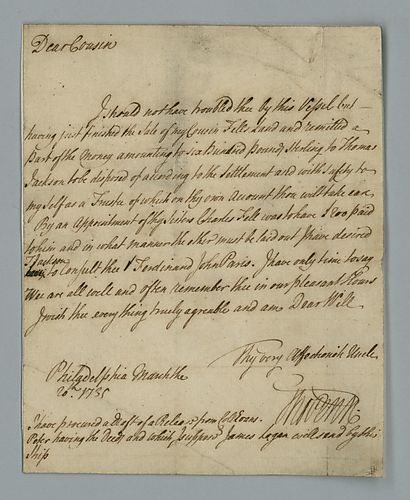 Dear Cousin
I should not have troubled thee by this Vessel but
having just finished the Sale of my Cousin Fells Land and remitted a
Part of the Money amounting to six Hundred Pounds Sterling to Thomas
Jackson to be disposed of acording to the Settlement and with safety to
my self as a Trustee of which on thy own Account thou wilt take care
By an Appointment of thy Sisters Charles Fell was to have £200 paid
to him and in what manner the other must be laid out I have desired
T Jackson to consult thee & Ferdinand John Paris. I have only time to say
Wee are all well and often remember thee in our pleasant Hours
I wish thee every thing truely agreable and am Dear Will
Thy very Affectionate Uncle
Philadelphia March the
20th 1735
I have procured a Draft of a Release from Coll Evans.
Peter having the Deeds and which I suppose James Logan will send by this
Ship